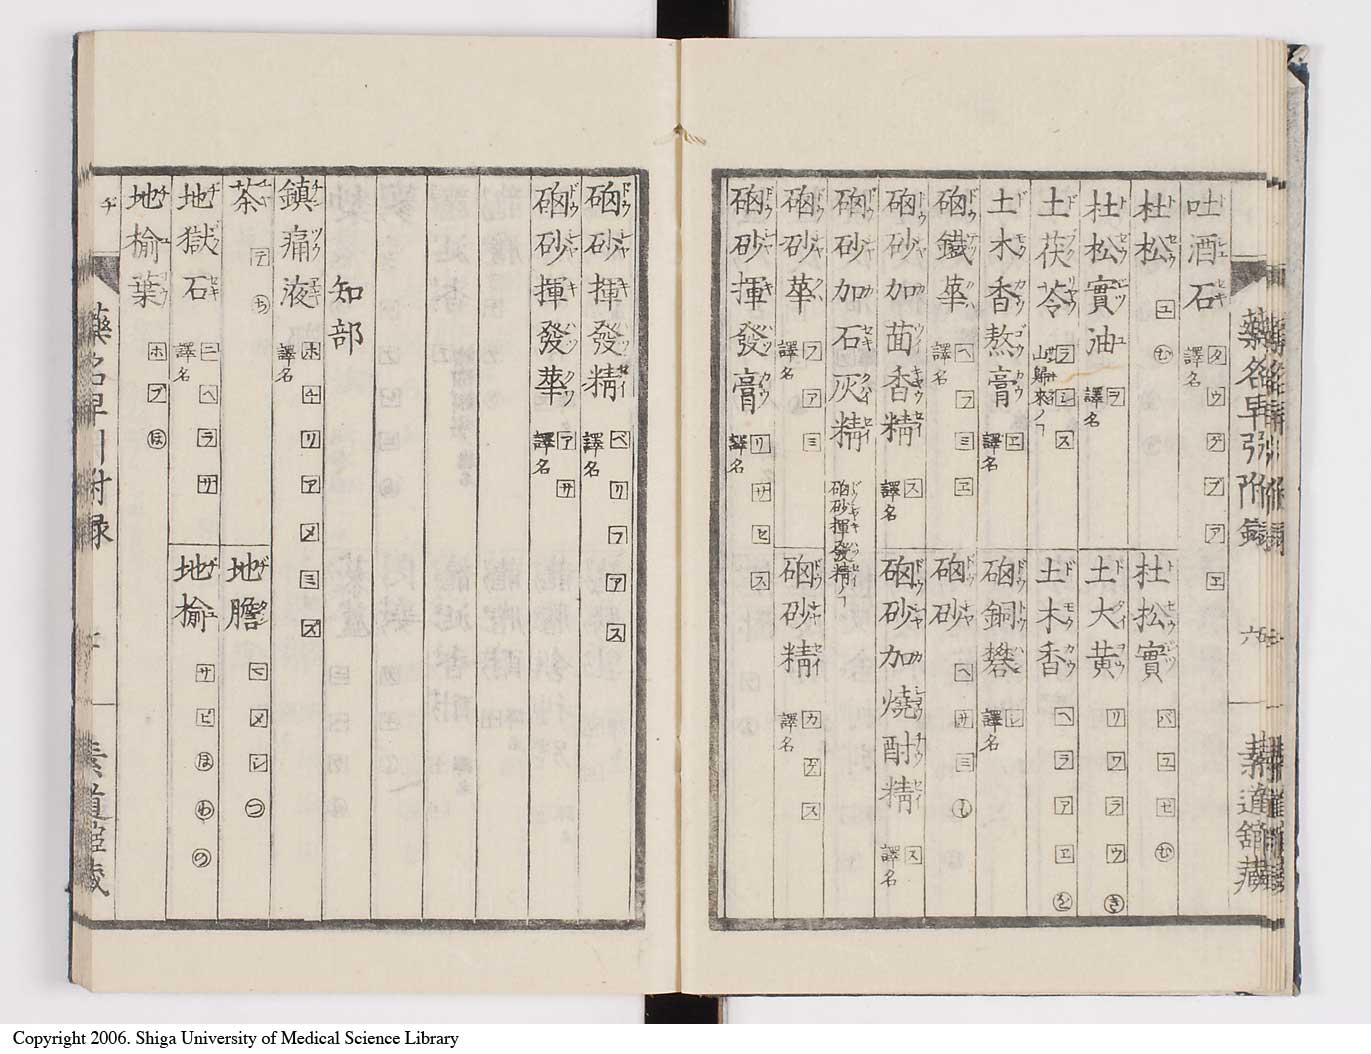 吐酒石 譯名 タウデブアエ
杜松 ユむ
杜松實 バユセむ
杜松實油 譯名 ヲ
土大黄 リワラウき
土茯苓 山歸來ノコ ラシス
土木香 ヘラアエを
土木香熬膏 譯名 エ
硇銅礬 譯名 レ
硇鐵華 譯名 ヘフミエ
硇砂 ヘサミし
硇砂加茴香精 譯名 ス
硇砂加燒酎精 譯名 ス
硇砂加石灰精 硇砂揮發精ノコ
硇砂華 譯名 フアミ
硇砂精 譯名 カゲス
硇砂揮發膏 譯名 リサヒス
藥名早引附錄
六
素道館藏
硇砂揮發精 譯名 ベリフアス
硇砂揮發華 譯名 アサ
知部
鎮痛液 譯名 ホキリアメミズ
茶 テち
地膽 マメシつ
地獄石 譯名 ニヘラサ
地榆 サピほわの
地榆葉 ホブほ
チ
藥名早引附録
Copyright 2006. Shiga University of Medical Science Library